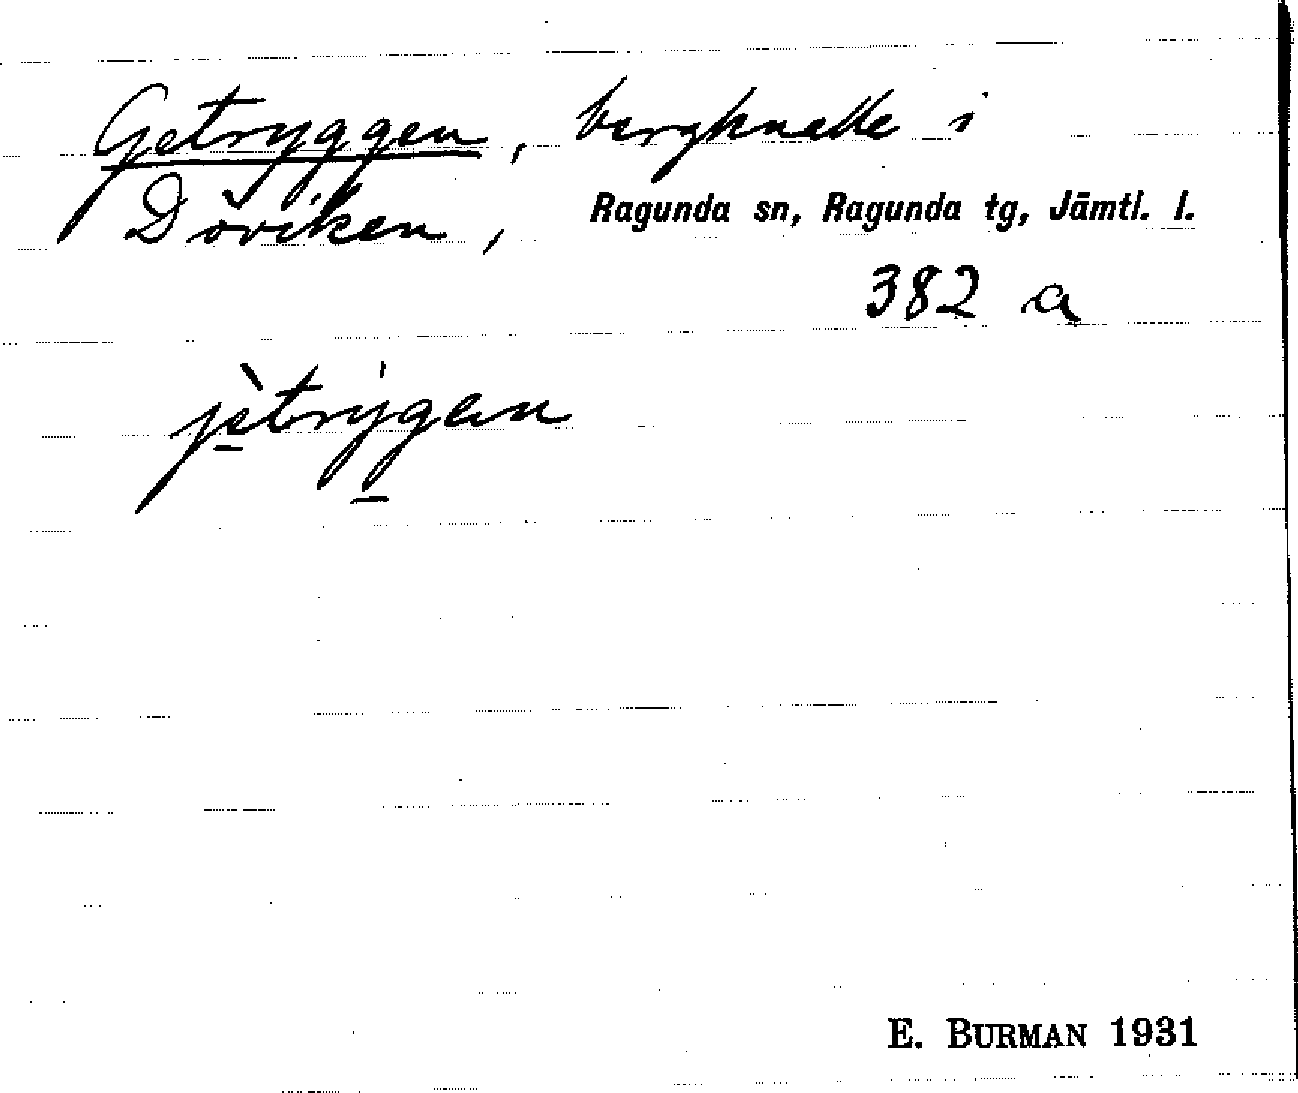 Getryggen, bergknalle i
Döviken, Ragunda sn, Ragunda tg, Jämtl. l.
382 a
jètrýgen
E. BURMAN 1931